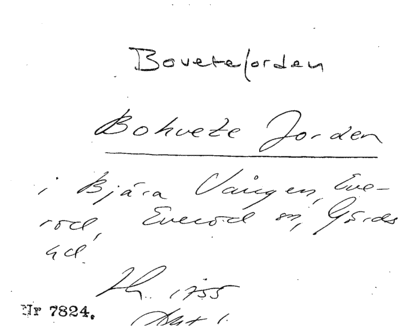 Bovetejorden
Bohvete Jorden
i Bjära Vången, Eve-
rod, Everöd sn, Gärds
hd.
Sk. 1755
Akt 1.
Nr 7824.